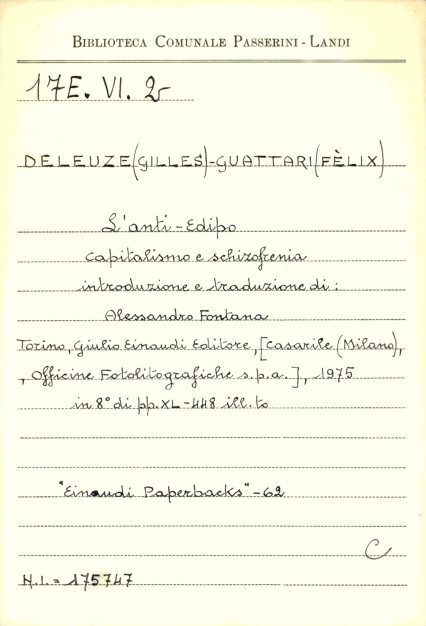 BIBLIOTECA COMUNALE PASSERINI - LANDI
17E. VI. 2
DELEUZE(GILLES)-GUATTARI(FÈLIX)
L'anti-Edipo
capitalismo e schizofrenia
introduzione e traduzione di:
Alessandro Fontana
Torino, Giulio Einaudi Editore, [Casarile (Milano),
, Officine Fotolitografiche s.p.a.], 1975
in 8° di pp. XL-448 ill.to
"Einaudi Paperbacks" - 62
C
N.I. = 175747